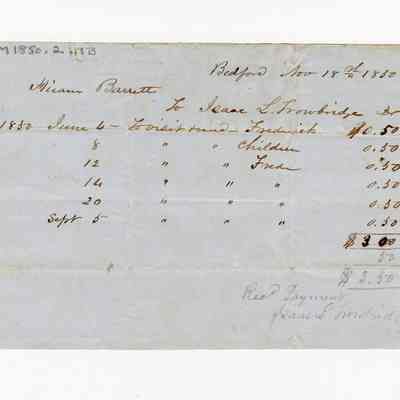 M 1850. 2. 
Bedford Nov 18th 1850
Hiram Barrett
To Isaac L Trowbridge Dr
1850 June 4 To visit Frederick $0.50
8 " " Children 0.50
12 " " Fred 0.50
14 " " " 0.50
20 " " " 0.50
Sept 5 " " " 0.50
$ 3 00
50
$ 3.50
Recd Payment
Isaac L Trowbridge